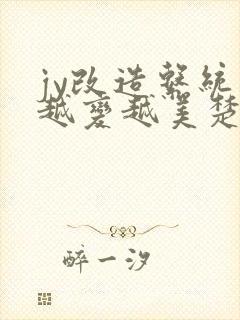 jy改造系統
越變越美楚
醉一汐